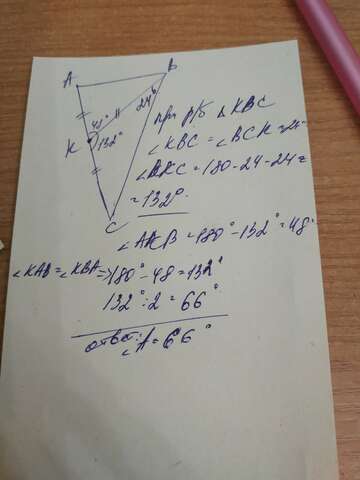 A
B
24°
48°
K
132°
C
при р/б Δ KBC
∠KBC = ∠BCK = 24°
∠BKC = 180 - 24 - 24 =
= 132°
∠AKB = 180° - 132° = 48°
∠KAB = ∠KBA => 180° - 48 = 132°
132° : 2 = 66°
ответ:
∠A = 66°